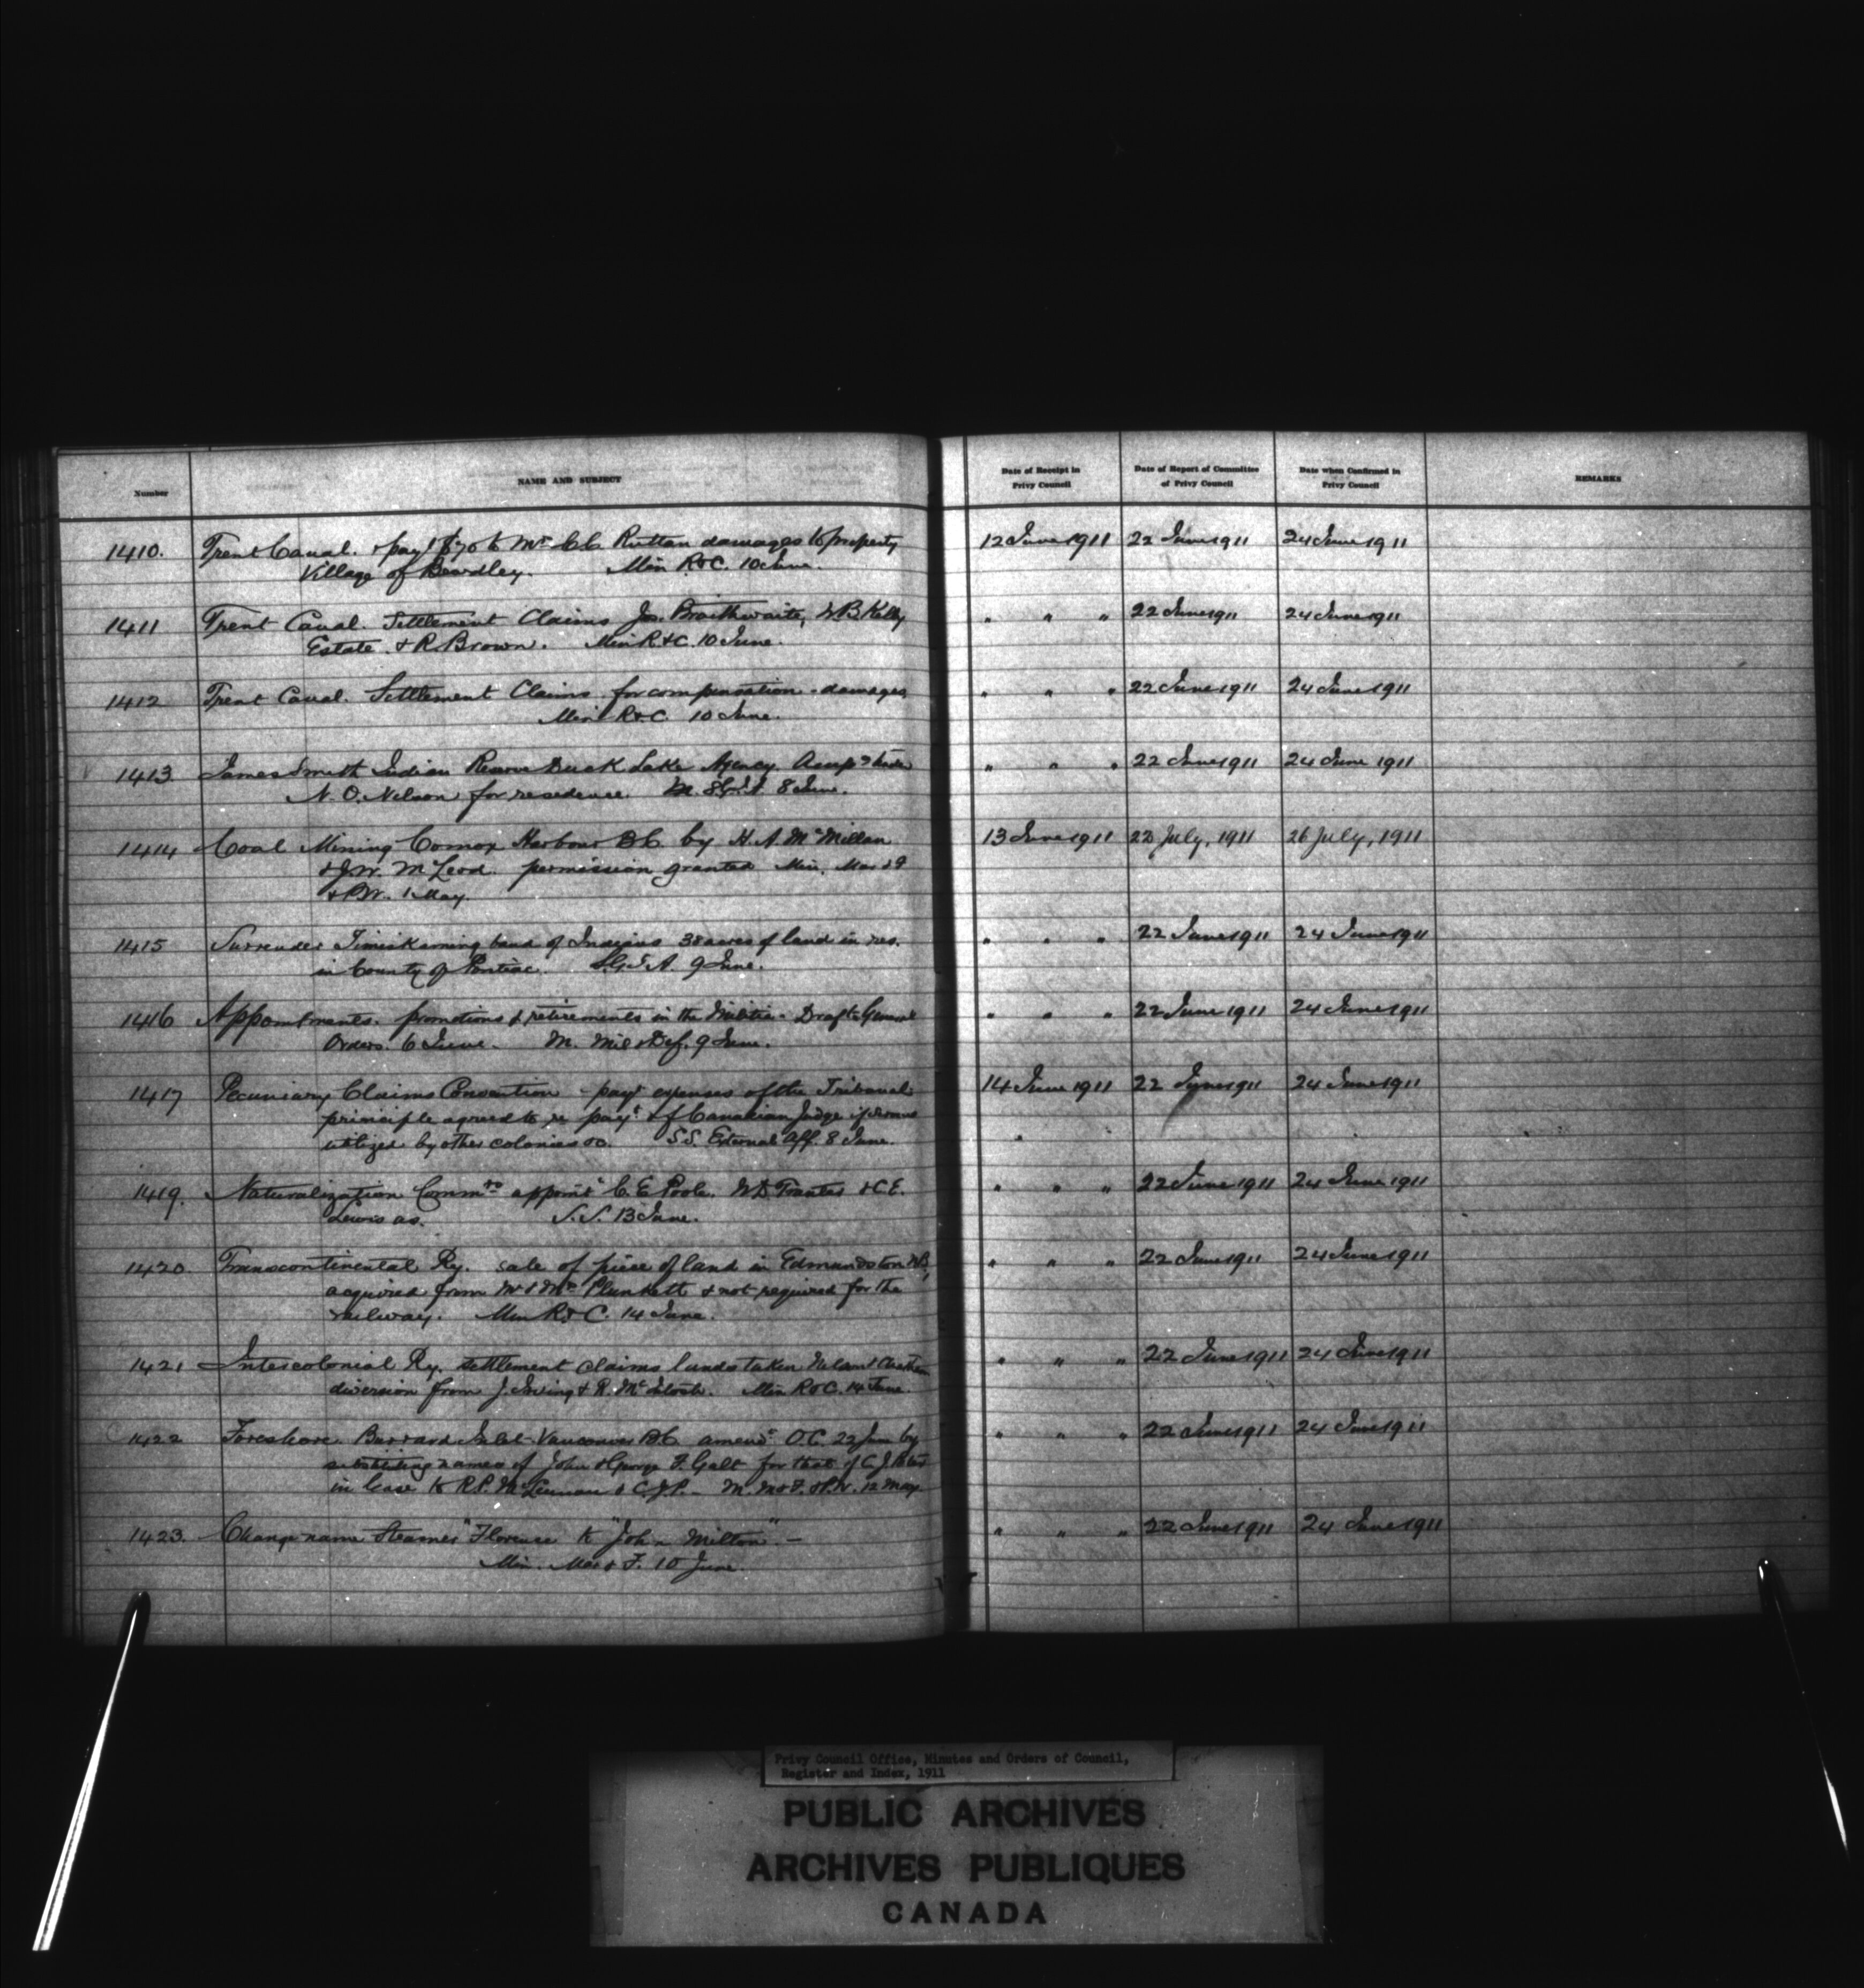 Number
NAME AND SUBJECT
Date of Receipt in
Privy Council
Date of Report of Committee
of Privy Council
Date when Confirmed in
Privy Council
REMARKS
1410. Trent Canal. pay $70 to Mr C C Ruttan damages to property 12 June 1911 22 June 1911 24 June 1911
Village of Bewdley. Min R & C. 10 June.
1411 Trent Canal. Settlement Claims Jos. Braithwaite, W B Kelly " " " 22 June 1911 24 June 1911
Estate. & R. Brown. Min R. & C. 10 June.
1412 Trent Canal. Settlement Claims for compensation - damages " " " 22 June 1911 24 June 1911
Min R & C. 10 June.
1413 James Smith Indian Reserve Duck Lake Agency. " " " 22 June 1911 24 June 1911
N. O. Nelson for residence. 8 June.
1414 Coal Mining Comox Harbour B C by H. A. McMillan 13 June 1911 22 July, 1911 26 July, 1911
& J. W. McLeod. permission granted Min. Mar & F
& P.W. 1 May.
1415 Surrender Timiskaming band of Indians 38 acres of land in res. " " " 22 June 1911 24 June 1911
in County of Pontiac. S.G.I.A. 9 June.
1416 Appointments. promotions & retirements in the Militia - Draft General " " " 22 June 1911 24 June 1911
Orders. 6 June. M. Mil & Def. 9 June.
1417 Pecuniary Claims Convention - payt expenses of the Tribunal 14 June 1911 22 June 1911 24 June 1911
principle agreed to re payt of Canadian Judge if services
utilized by other colonies &c. S.S. External Aff. 8 June.
1419. Naturalization Commrs appoint C. E. Poole. W D & C E. " " " 22 June 1911 24 June 1911
Lewis as. S.S. 13 June.
1420 Transcontinental Ry. sale of piece of land in Edmundston N B, " " " 22 June 1911 24 June 1911
acquired from Mr & Mrs Plunkett & not required for the
railway. Min R & C. 14 June.
1421 Intercolonial Ry. settlement claims lands taken Nelson & Chatham " " " 22 June 1911 24 June 1911
diversion from J. Irving & R. McIntosh. Min R & C. 14 June.
1422 Foreshore. Burrard Inlet - Vancouver B C amendt O.C. 22 June by " " " 22 June 1911 24 June 1911
substituting names of John & George F. Galt for that of C. J.
in lease to R. P. McLennan & C. J. P. - M. M & F. & P.W. 12 May
1423. Change name Steamer "Florence to "John Milton". - " " " 22 June 1911 24 June 1911
Min. Mar & F. 10 June.
Privy Council Office, Minutes and Orders of Council,
Register and Index, 1911
PUBLIC ARCHIVES
ARCHIVES PUBLIQUES
CANADA